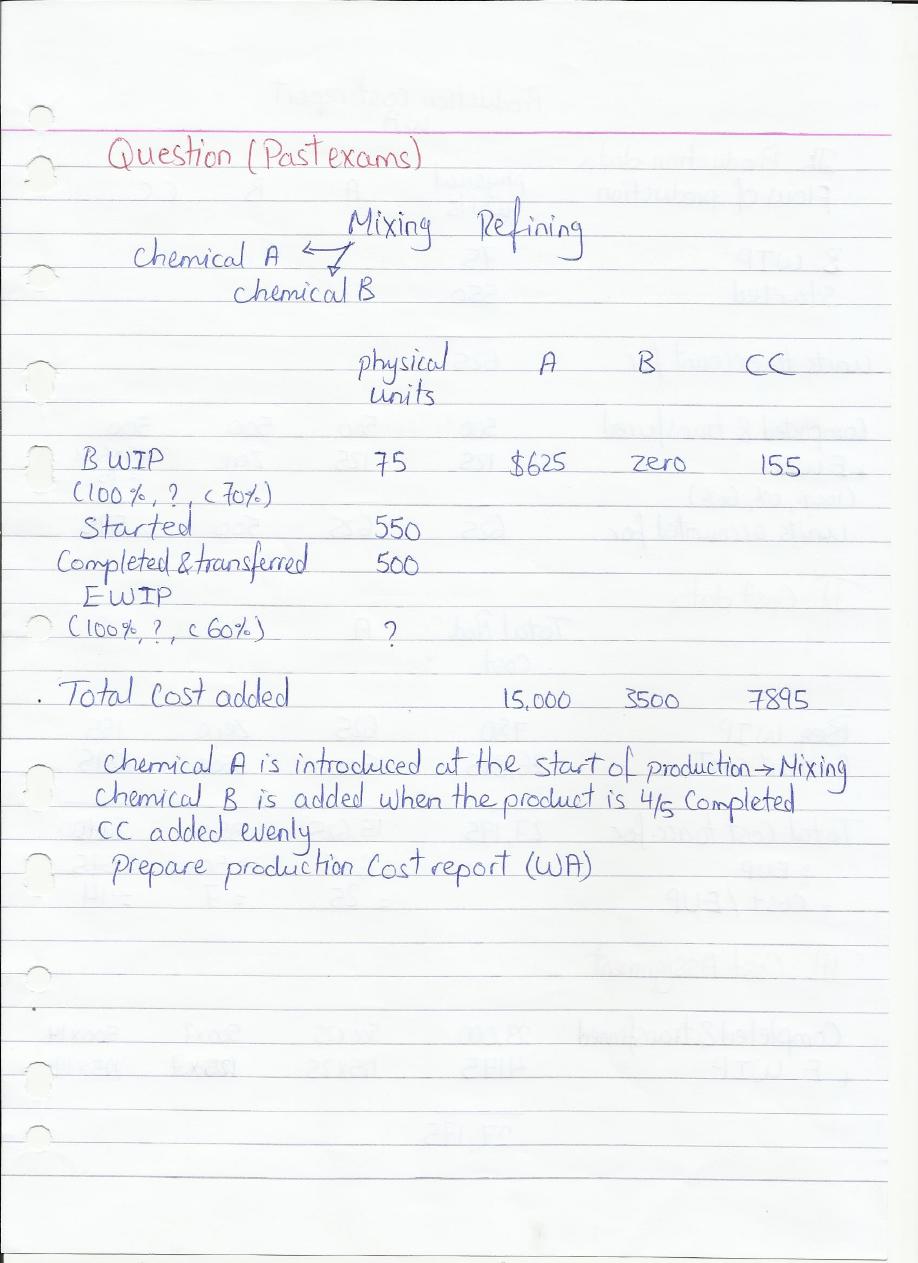 Question (Past exams)
Mixing Refining
Chemical A
Chemical B
physical A B CC
units
B WIP 75 $625 zero 155
(100%, ?, c 70%)
Started 550
Completed & transferred 500
E WIP
(100%, ?, c 60%) ?
Total Cost added 15,000 3500 7895
Chemical A is introduced at the start of production → Mixing
Chemical B is added when the product is 4/5 Completed
CC added evenly
Prepare production Cost report (WA)